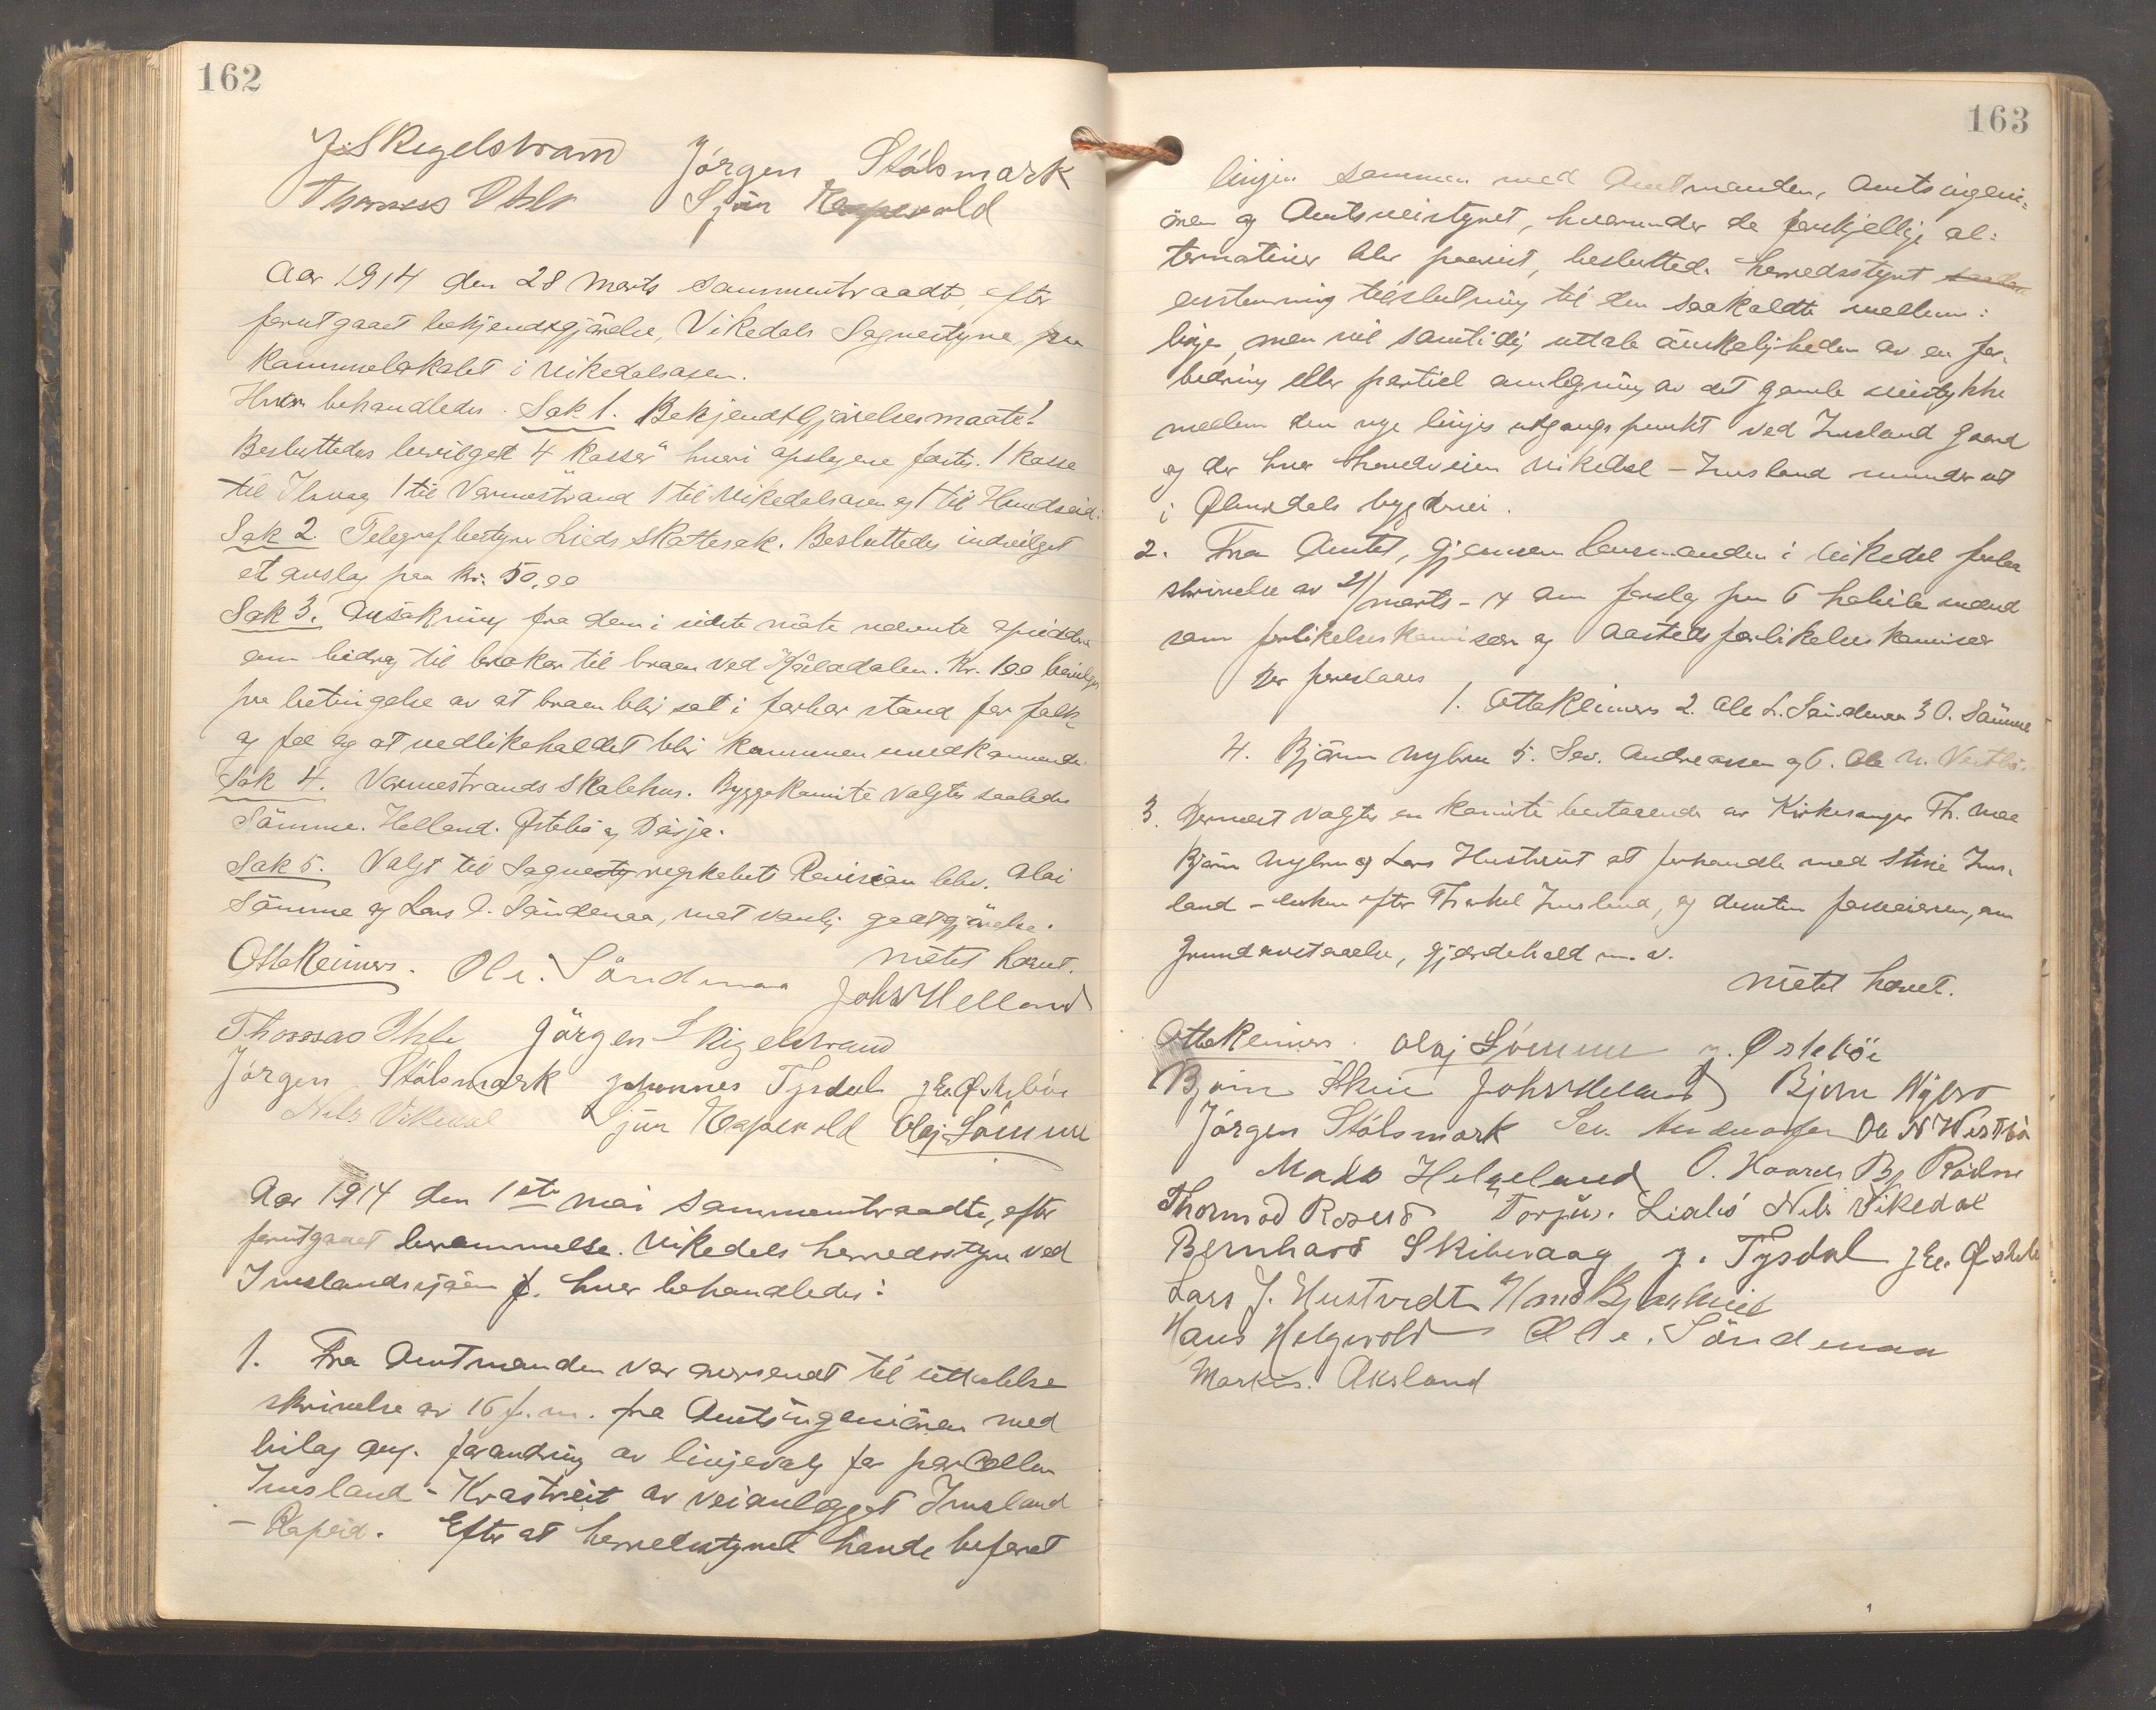 162
J. Skegelstrand Jörgen Stólsmark
Thomas Sjur
Aar 1914 den 28 Marts sammentraadte, efter
forutgaaet bekjendtgjörelse, Vikedals Sognestyre paa
kommunelokalet i Vikedalsosen.
Hvor behandledes. Sak 1. Bekjendtgjörelsesmaate!
Besluttedes bevilget 4 "kasser" hvori opslagene fæstes. 1 kasse
til Ilsvaag 1 til Vormestrand 1 til Vikedalsosen og 1 til Hundseid.
Sak 2. Telegrafbestyrer Lieds skattesak. Besluttedes indvilget
et avslag paa kr. 50.00
Sak 3. Ansökning fra dem i sidste möte nævnte opsiddere
om bidrag til broker til broen ved Kr. 100 bevilges
paa betingelse av at broen blir sat i farbar stand for folk
og fæ og at vedlikeholdet blir kommunen uvedkommende.
Sak 4. Vormestrands skolehus. Byggekomite valgtes saaledes
Sömme. Helland. Östebö og
Sak 5. Valgt til Sognesty regnskabets Revision blev. Olai
Sömme og Lars O. Söndenaa, mot vanlig godtgjörelse.
Mötet hævet.
Otto Reimers. Ole. Söndenaa Johs Helland
Thomas Jörgen Skigelstrand
Jörgen Stólsmark Johannes Tysdal J. E. Östebö
Nils Vikedal Sjur Olaj Sömme
Aar 1914 den 1ste mai sammentraadte, efter
forutgaaet berammelse. Vikedals herredsstyre ved
Imslandssjöen hvor behandledes:
1. Fra Amtmanden var oversendt til uttalelse
skrivelse av 16 f. m. fra Amtsingeniören med
bilag ang. forandring av linjevalg for parcellen
Imsland - Krastveit av veianlægget Imsland
- Ropeid. Efter at herredsstyret havde befaret
163
linjen sammen med Amtmanden, Amtsingeni=
ören og Amtsveistyret, hvorunder de forskjellige al=
ternativer blev paavist, besluttedes herredsstyret
enstemmig tilslutning til den saakaldte mellem=
linje, men vil samtidig uttale önskeligheden av en for=
bedring eller partiel omlægning av det gamle veistykke
mellem den nye linjes utgangspunkt ved Imsland gaard
og der hvor hovedveien Vikedal - Imsland munder ut
i Ölmedals bygdevei.
2. Fra Amtet, gjennem lensmanden i Vikedal forelaa
skrivelse av 21/ marts - 14 om forslag paa 6 habile mænd
som forlikelseskommissær og aastedsforlikelseskommissær
Der foreslaaes
1. Otto Reimers 2. Ole L. Söndenaa 3 O. Sömme
4. Björn Nybru 5. Sev. Andreassen og 6. Ole N. Vestbö.
3. Dernæst valgtes en komite bestaaende av Kirkesanger Th. Moe
Björn Nybru og Lars Hustveit at forhandle med Stine Ims=
land - enken efter Thorkel Imsland, og desuten formeieren, om
grundavstaaelse, gjerdehold m. v.
Mötet hævet.
Otto Reimers. Olaj Sömme J. Östebö
Björn Johs Helland Bjorn Nybro
Jörgen Stólsmark Sev. Andreassen Ole N Westbö
Mads Helgeland O. Bj. Rödne
Thormod Roseid Torjus. Lialió Nils Vikedal
Bernhard Skibevaag J. Tysdal J. E. Östebö
Lars J. Hustvedt Hans
Hans Helgevold Ole. Söndenaa
Markus. Aksland